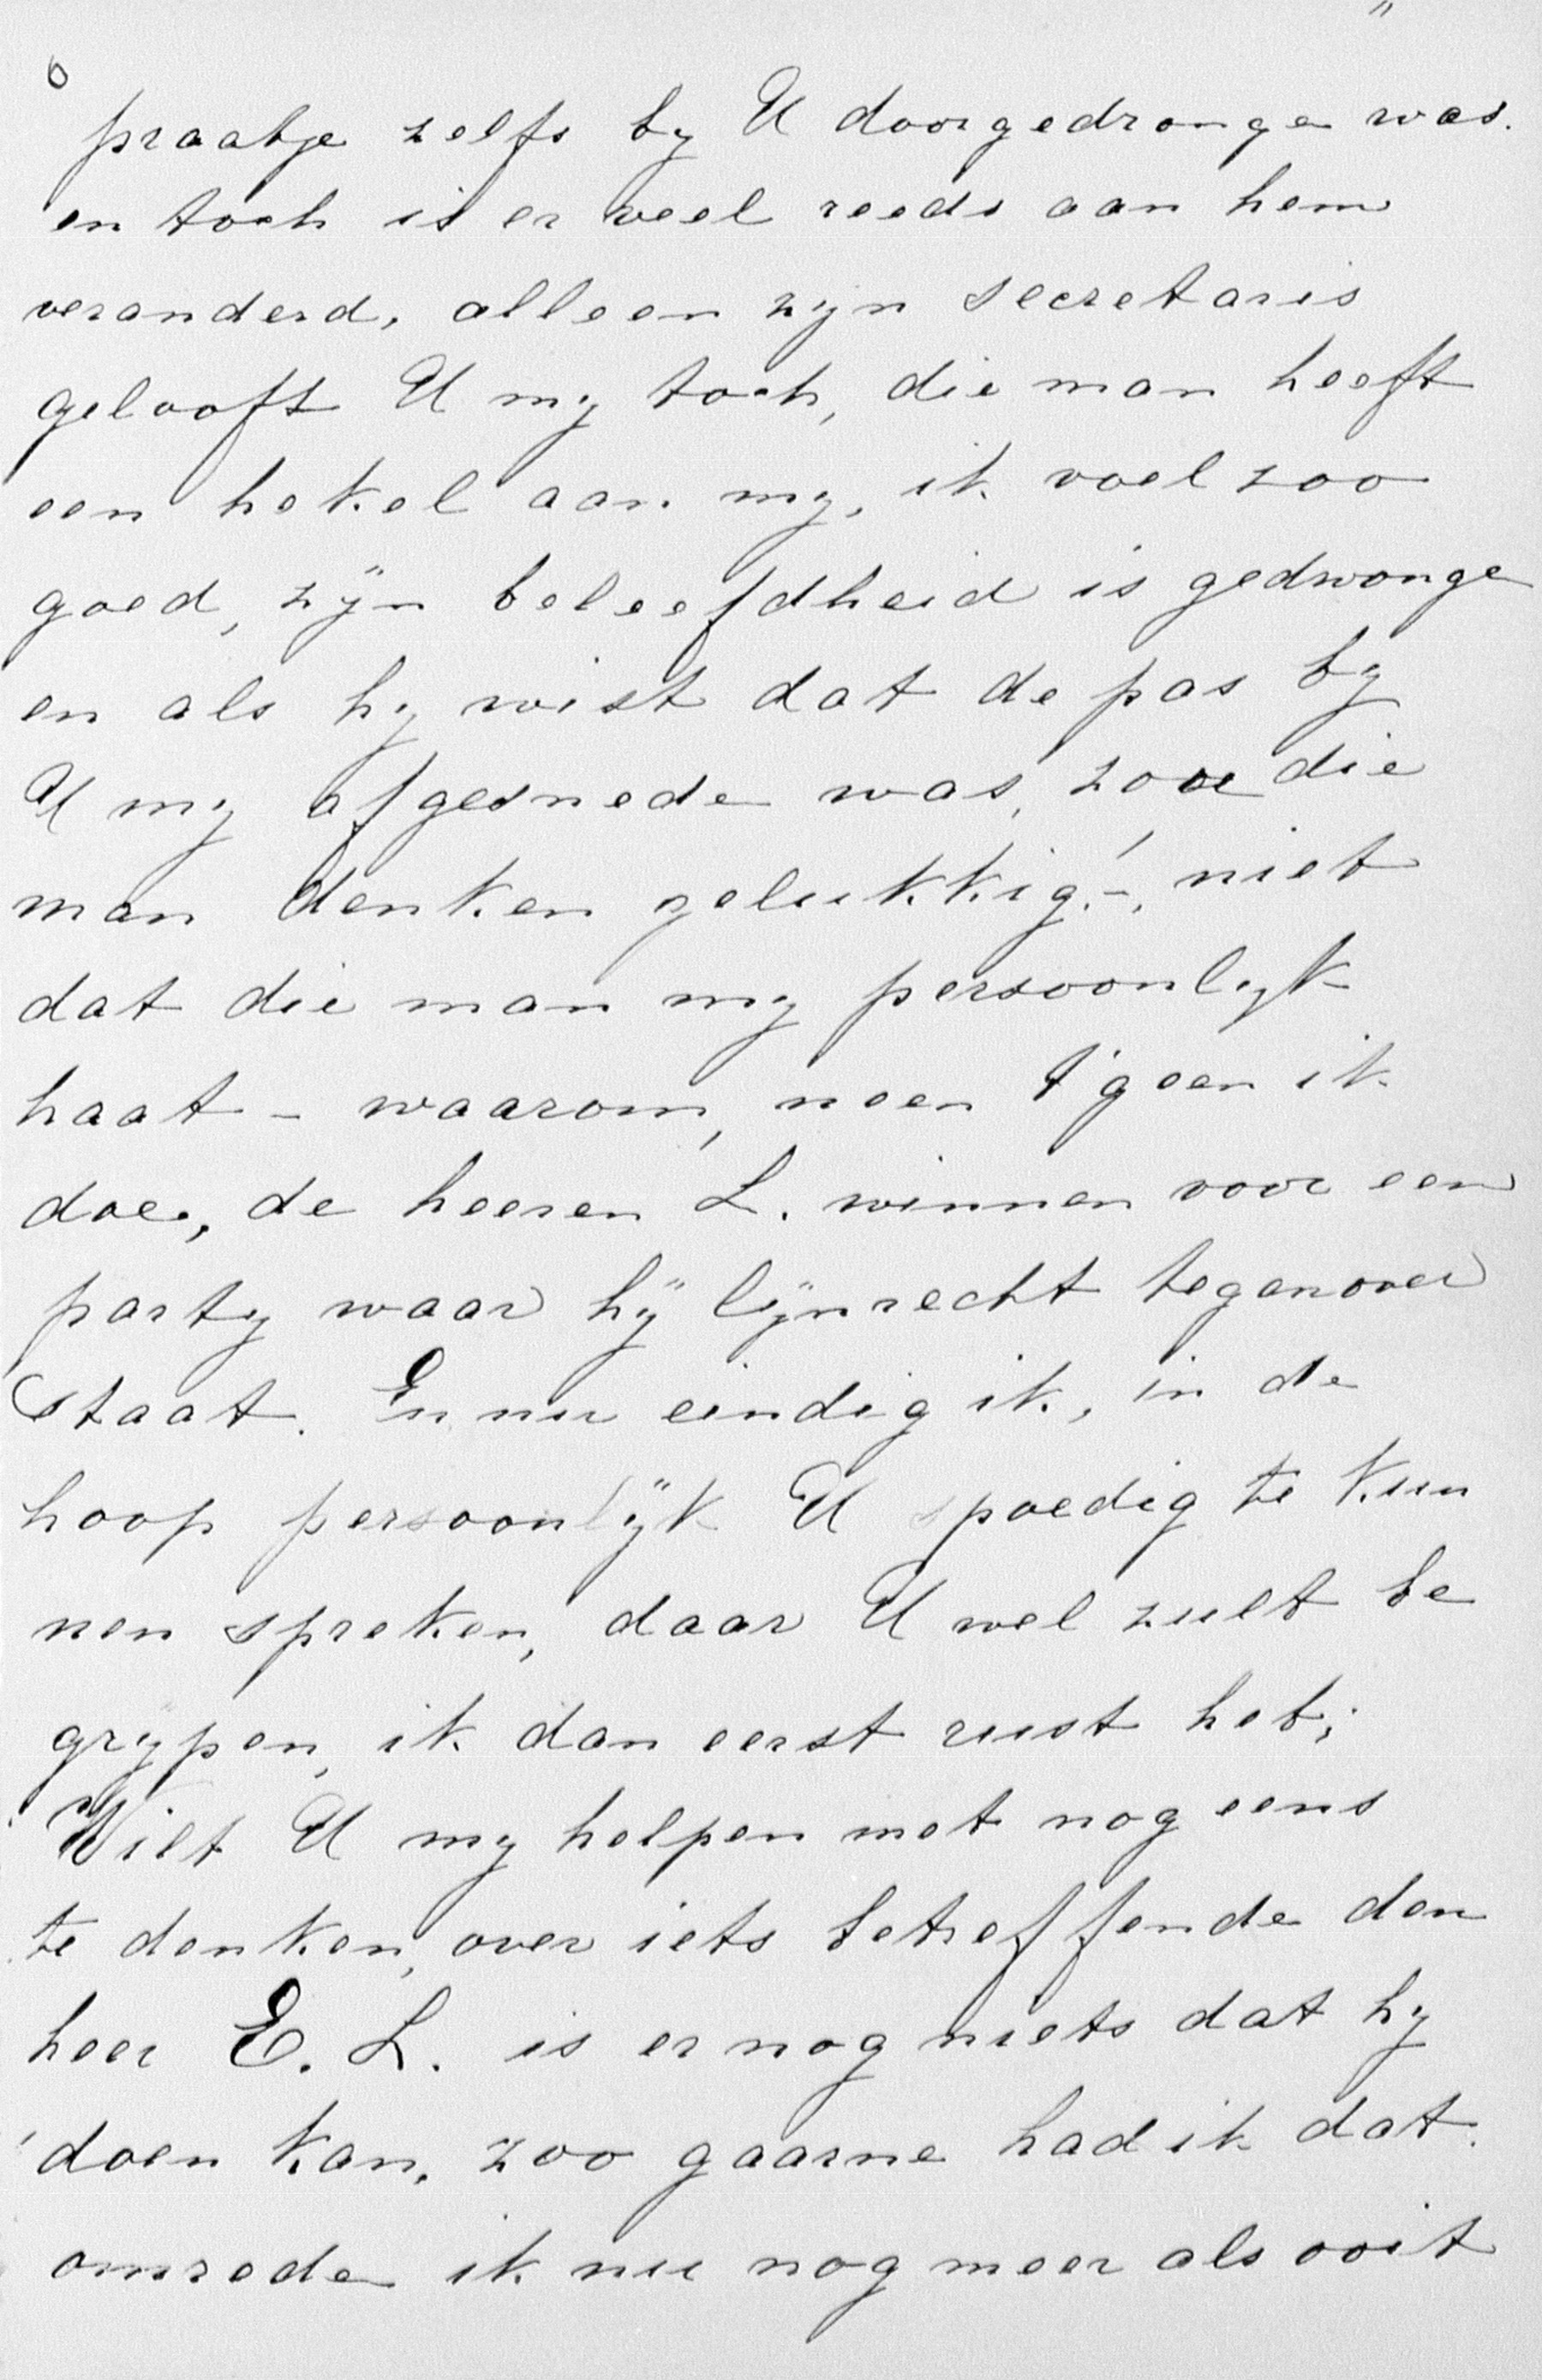 6
praatje zelfs by U doorgedronge was.
en toch is er veel reeds aan hem
veranderd, alleen zyn secretaris
gelooft U my toch, die man heeft
een hekel aan my, ik voel zoo
goed, zÿn beleefdheid is gedwonge
en als hy wist dat de pas by
U my afgesnede was, zou die
man denken gelukkig!-, niet
dat die man my persoonlyk
haat - waarom, neen t'geen ik
doe, de heeren L. winnen voor een
party waar hÿ lÿnrecht tegenover
staat. En nu eindig ik, in de
hoop persoonlÿk U spoedig te kun
nen spreken, daar U wel zult be
grypen, ik dan eerst rust heb;
Wilt U my helpen met nog eens
te denken, over iets betreffende den
heer E. L. is er nog niets dat hy
doen kan, zoo gaarne had ik dat.
omrede ik nu nog meer als ooit